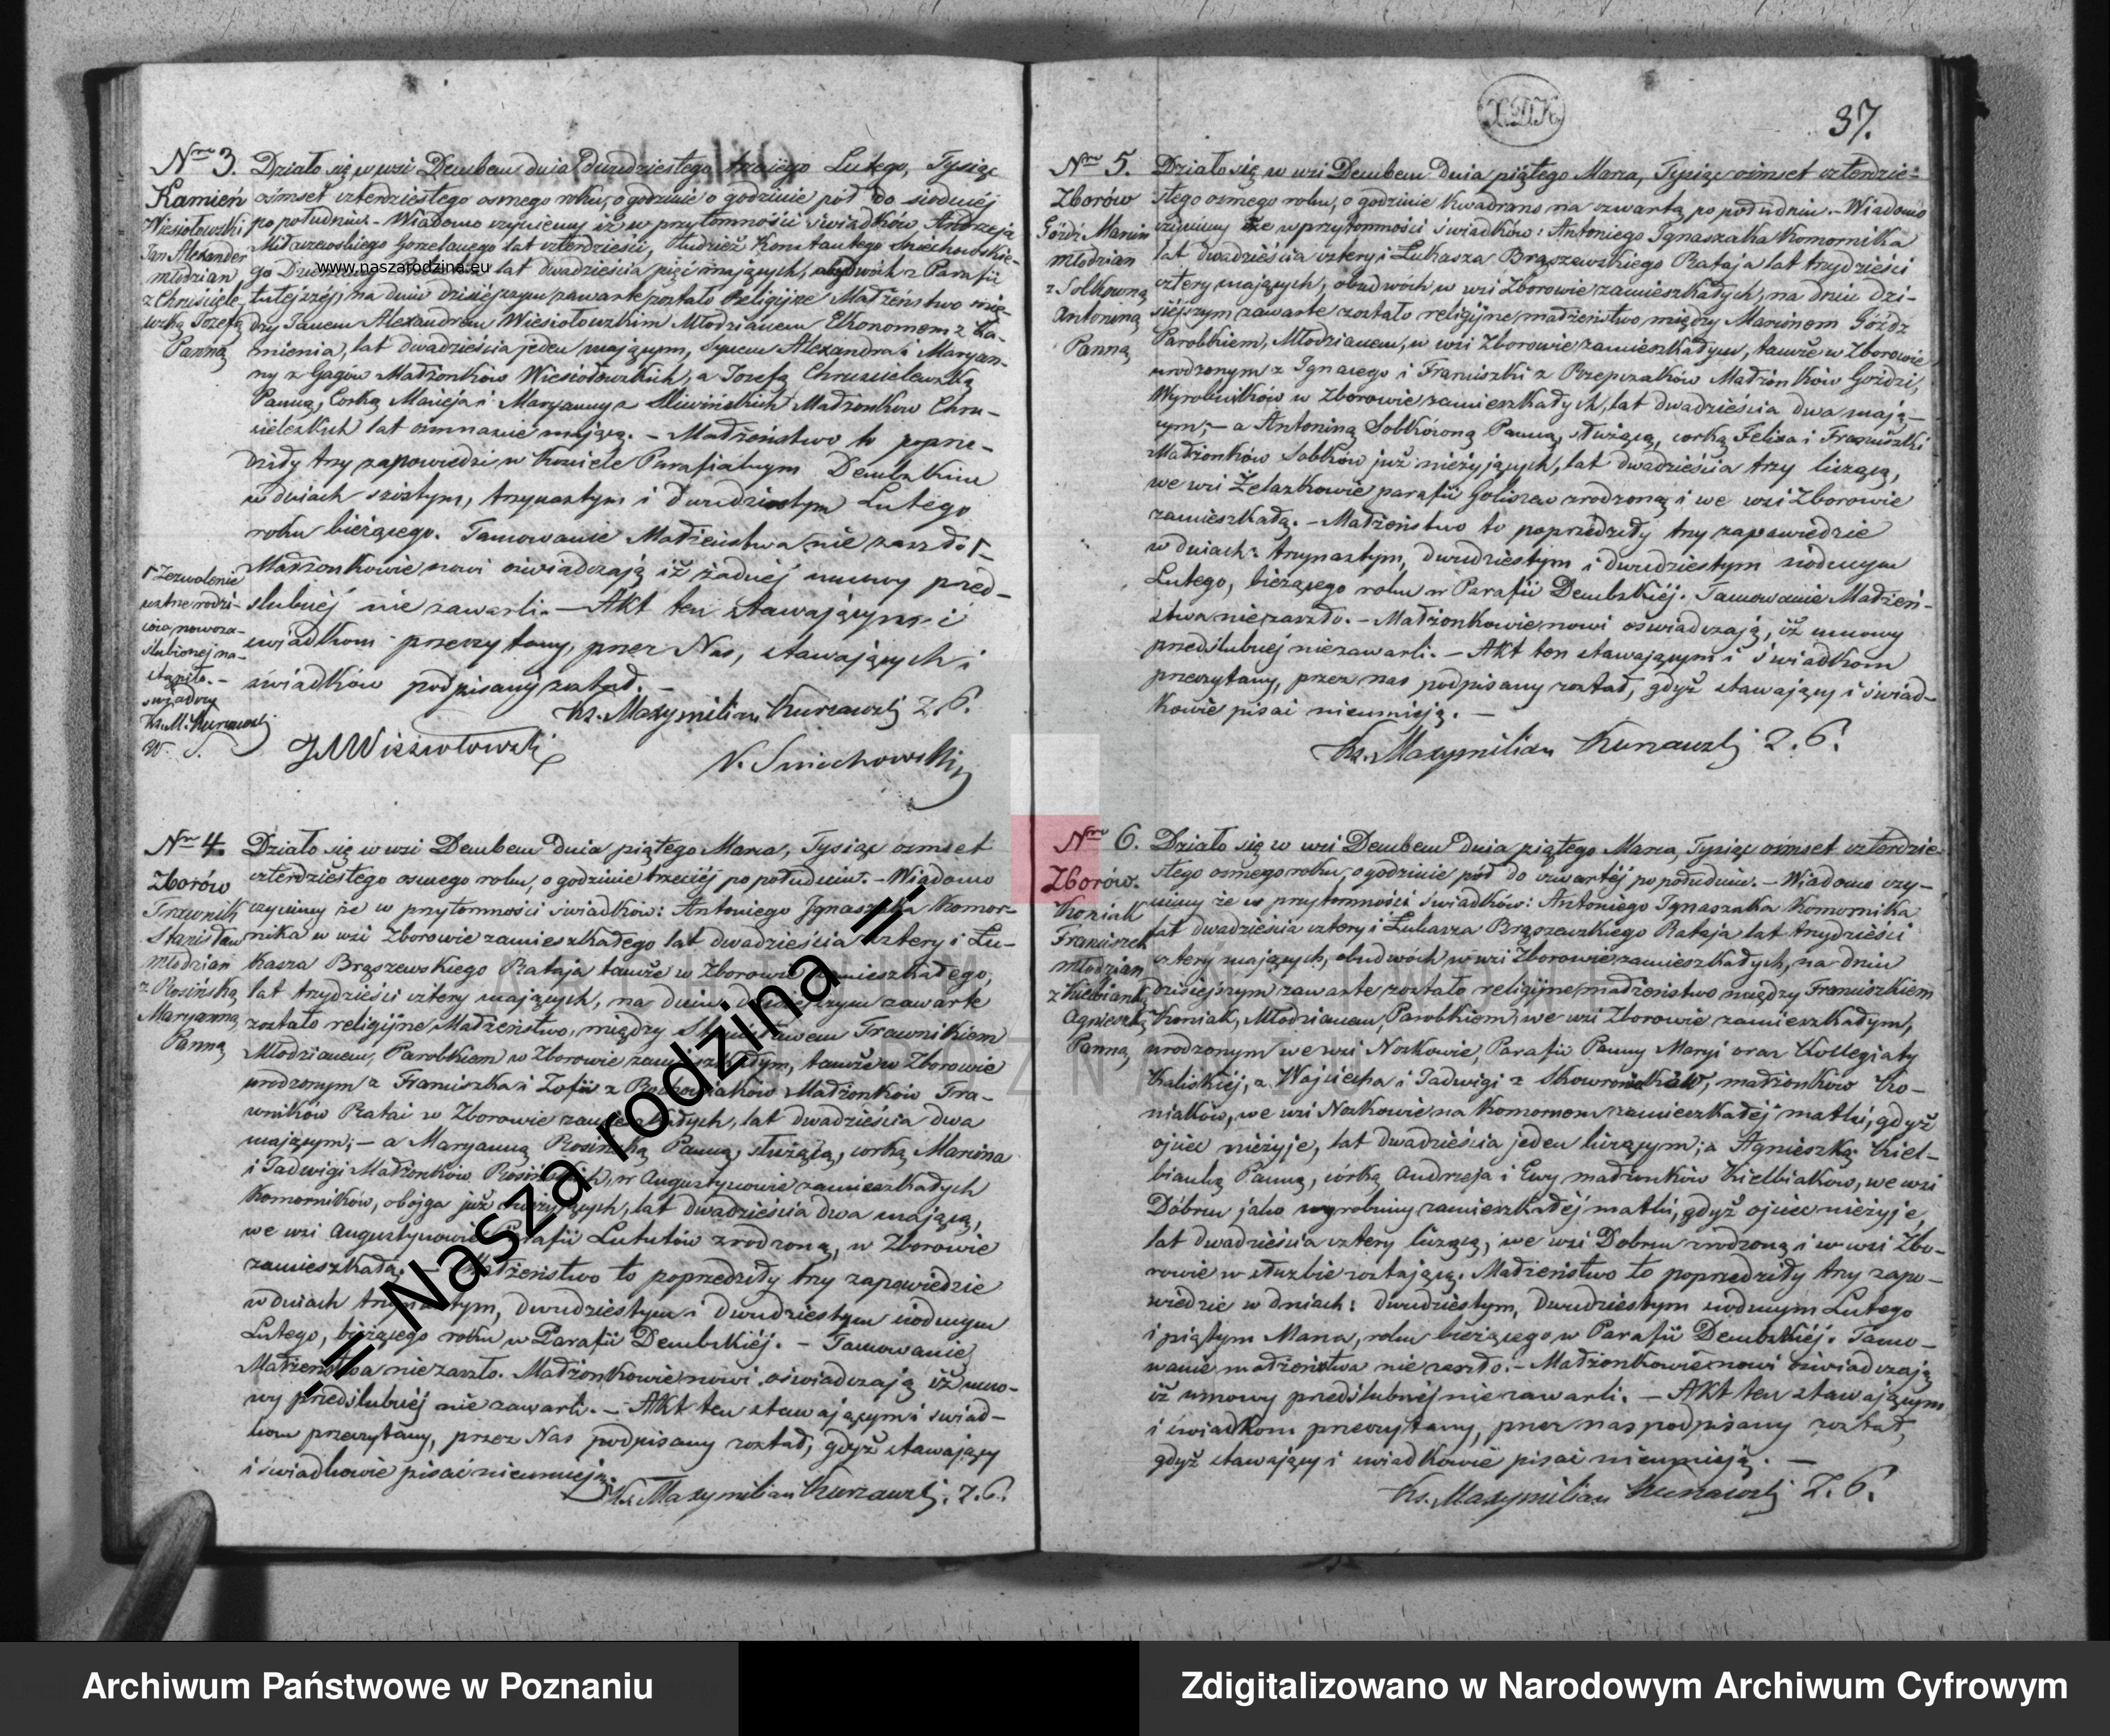 37.
Nro 3.
Kamień
Wiesiołowski
Jan Alexander
młodzian
z Chruściele-
wską Jozefą
Panną
Działo się w wsi Dembem dnia dwudziestego trzeciego Lutego, Tysiąc
ośmset czterdziestego osmego roku, o godzinie o godzinie pół do siodméj
po południu. – Wiadomo czyniemy iż w przytomności świadków Andrzeja
Gorzelanego lat czterdzieści, tudzież Konstantego
lat dwadzieścia pięć mających, obydwóch z Parafii
tutejszéj, na dniu dzisiéjszym zawarte zostało Religijne Małżeństwo mię-
dzy Janem Alexandrem Wiesiołowskim Młodzianem Ekonomem z Ka-
mienia, lat dwadzieścia jeden mającym, Synem Alexandra i Maryan-
ny z Gagów Małżonków Wiesiołowskich, a Jozefą Chruscielewską
Panną, Corką Macieja i Maryanny z Sliwińskich Małżonkow Chru-
lat ośmnaście mającą. – Małżeństwo to poprze-
dziły trzy zapowiedzi w Kosciele Parafialnym Dembskim
w dniach szóstym, trzynastym i dwudziestym Lutego
roku bieżącego. Tamowanie Małżeństwa nie zaszło
Małżonkowie nowi oświadczają iż żadnéj umowy przed-
slubnéj nie zawarli. – Akt ten stawającym i
swiadkom przeczytany, przez Nas, stawających i
świadków podpisany został. –
Zezwolenie
ustne rodzi-
ców nowoza-
ślubionej na-
stąpiło. –
Ks. Maxymilian Kurzawski Z. P.
JAWiesiołowski
www.naszarodzina.eu
Nro 4.
Zborów
Trawnik
Stanisław
młodzian
z Rosińską
Maryanną
Panną
Działo się w wsi Dembem dnia piątego Marca, Tysiąc osmset
czterdziestego osmego roku, o godzinie trzeciéj po południu. – Wiadomo
czyniemy że w przytomności świadków: Antoniego Ignaszaka Komor-
nika w wsi Zborowie zamieszkałego lat dwadzieścia cztery i Łu-
kasza Brąszewskiego Rataja tamże w Zborowie zamieszkałego,
lat trzydzieści cztery mających, na dniu dzisiejszym zawarte
zostało religijne Małżeństwo, między Stanisławem Trawnikiem
Młodzianem, Parobkiem w Zborowie zamieszkałym, tamże w Zborowie
urodzonym z Franciszka i Zofii z Małżonków Tra-
wników Ratai w Zborowie zamieszkałych, lat dwadzieścia dwa
mającym; – a Maryanną Rosińską Panną, służącą, corką Marcina
i Jadwigi Małżonków Rosińskich, w Augustynowie zamieszkałych
Komorników, obojga już nieżyjących, lat dwadzieścia dwa mającą,
we wsi Augustynowie Parafii Lututów zrodzoną, w Zborowie
zamieszkałą. – Małżeństwo to poprzedziły trzy zapowiedzie
w dniach trzynastym, dwudziestym i dwudziestym siodmym
Lutego, bieżącego roku w Parafii Dembskiéj. – Tamowanie
Małżeństwa nie zaszło. Małżonkowie nowi oświadczają iż umo-
wy przedślubnéj nie zawarli. – Akt ten stawającym i świad-
kom przeczytany, przez Nas podpisany został, gdyż stawający
i świadkowie pisać nieumieją.
Ks. Maxymilian Kurzawski. Z. P.
Nro 5.
Zborów
Góźdź Marcin
młodzian
z Sobkowną
Antoniną
Panną
Działo się w wsi Dembem Dnia piątego Marca, Tysiąc ośmset czterdzie-
stego osmego roku, o godzinie Kwadrans na czwartą po południu. – Wiadomo
czyniemy że w przytomności świadków: Antoniego Ignaszaka Komornika
lat dwadzieścia cztery i Łukasza Brąszewskiego Rataja lat trzydzieści
cztery mających, obudwóch w wsi Zborowie zamieszkałych, na dniu dzi-
siéjszym zawarte zostało religijne małżeństwo między Marcinem Góźdź
Parobkiem, Młodzianem, w wsi Zborowie zamieszkałym, tamże w Zborowie
urodzonym z Ignacego i Franciszki z Małżonków Goździ,
Wyrobników w Zborowie zamieszkałych, lat dwadzieścia dwa mają-
cym, – a Antoniną Sobkówną Panną, służącą, corką Felixa i Franciszki
Małżonków Sobków już nieżyjących, lat dwadzieścia trzy liczącą,
we wsi Żelazkowie parafii Goliszew zrodzoną i we wsi Zborowie
zamieszkałą. – Małżeństwo to poprzedziły trzy zapowiedzie
w dniach: trzynastym, dwudziestym i dwudziestym siódmym
Lutego, bieżącego roku w Parafii Dembskiéj. Tamowanie Małżeń-
stwa nie zaszło. – Małżonkowie nowi oświadczają, iż umowy
przedślubnej niezawarli. – Akt ten stawającym i świadkom
przeczytany, przez nas podpisany został, gdyż stawający i świad-
kowie pisać nieumieją. –
Ks. Maxymilian Kurzawski Z. P.
Nro 6.
Zborów.
Koniak
Franciszek
młodzian
z Kiełbianką
Agnieszką
Panną
Działo się w wsi Dembem dnia piątego Marca, Tysiąc osmset czterdzie-
stego osmego roku, o godzinie pół do czwartéj po południu. – Wiadomo czy-
niemy że w przytomności świadków: Antoniego Ignaszaka Komornika
lat dwadzieścia cztery i Łukasza Brąszewskiego Rataja lat trzydzieści
cztery mających, obudwóch w wsi Zborowie zamieszkałych, na dniu
dzisiejszym zawarte zostało religijne małżeństwo między Franciszkiem
Koniak, Młodzianem, Parobkiem, we wsi Zborowie zamieszkałym,
urodzonym we wsi Noskowie, Parafii Panny Maryi oraz Kollegiaty
Kaliskiéj, z Wojciecha i Jadwigi z Skowrońskich, małżonków Ko-
niaków, we wsi Noskowie na Komornem zamieszkałéj matki, gdyż
ojciec nieżyje, lat dwadzieścia jeden liczącym; a Agnieszką Kieł-
bianką Panną, córką Andrzeja i Ewy małżonków Kiełbiaków, we wsi
Dóbrcu jako wyrobnicy zamieszkałéj matki, gdyż ojciec nieżyje,
lat dwadzieścia cztery liczącą, we wsi Dobrcu zrodzoną i w wsi Zbo-
rowie w służbie zostającą. Małżeństwo to poprzedziły trzy zapo-
wiedzie w dniach: dwudziestym, dwudziestym siodmym Lutego
i piątym Marca, roku bieżącego w Parafii Dembskiéj. Tamo-
wanie małżeństwa nie zaszło. – Małżonkowie nowi oświadczają
iż umowy przedślubnéj nie zawarli. – Akt ten stawającym
i świadkom przeczytany, przez nas podpisany został,
gdyż stawający i świadkowie pisać nieumieją. –
Ks. Maxymilian Kurzawski Z. P.
-= Nasza rodzina =-
Archiwum Państwowe w Poznaniu
Zdigitalizowano w Narodowym Archiwum Cyfrowym